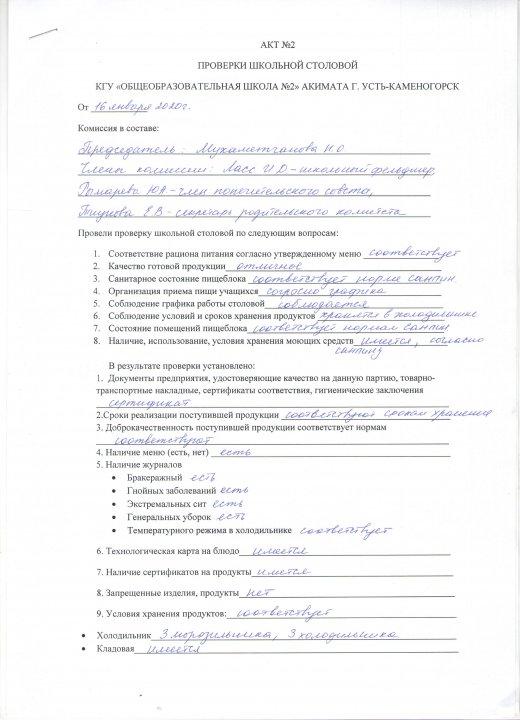 АКТ №2
ПРОВЕРКИ ШКОЛЬНОЙ СТОЛОВОЙ
КГУ «ОБЩЕОБРАЗОВАТЕЛЬНАЯ ШКОЛА №2» АКИМАТА Г. УСТЬ-КАМЕНОГОРСК
От 16 января 2020г.
Комиссия в составе:
Председатель: Мухаметжанова Н.О
Члены комиссии: Ласс И.О - школьный фельдшер,
Ю.А - член попечительского совета,
Е.В - секретарь родительского комитета
Провели проверку школьной столовой по следующим вопросам:
1. Соответствие рациона питания согласно утвержденному меню соответствует
2. Качество готовой продукции отличное
3. Санитарное состояние пищеблока соответствует норме санпин
4. Организация приема пищи учащихся согласно графика
5. Соблюдение графика работы столовой соблюдается
6. Соблюдение условий и сроков хранения продуктов хранятся в холодильнике
7. Состояние помещений пищеблока соответствует нормам санпин
8. Наличие, использование, условия хранения моющих средств имеется, согласно
санпину
В результате проверки установлено:
1. Документы предприятия, удостоверяющие качество на данную партию, товарно-
транспортные накладные, сертификаты соответствия, гигиенические заключения
сертификат
2.Сроки реализации поступившей продукции соответствуют срокам хранения
3. Доброкачественность поступившей продукции соответствует нормам
соответствуют
4. Наличие меню (есть, нет) есть
5. Наличие журналов
• Бракеражный есть
• Гнойных заболеваний есть
• Экстремальных сит есть
• Генеральных уборок есть
• Температурного режима в холодильнике соответствует
6. Технологическая карта на блюдо имеется
7. Наличие сертификатов на продукты имеется
8. Запрещенные изделия, продукты нет
9. Условия хранения продуктов: соответствует
• Холодильник 3 морозильника, 3 холодильника
• Кладовая имеется